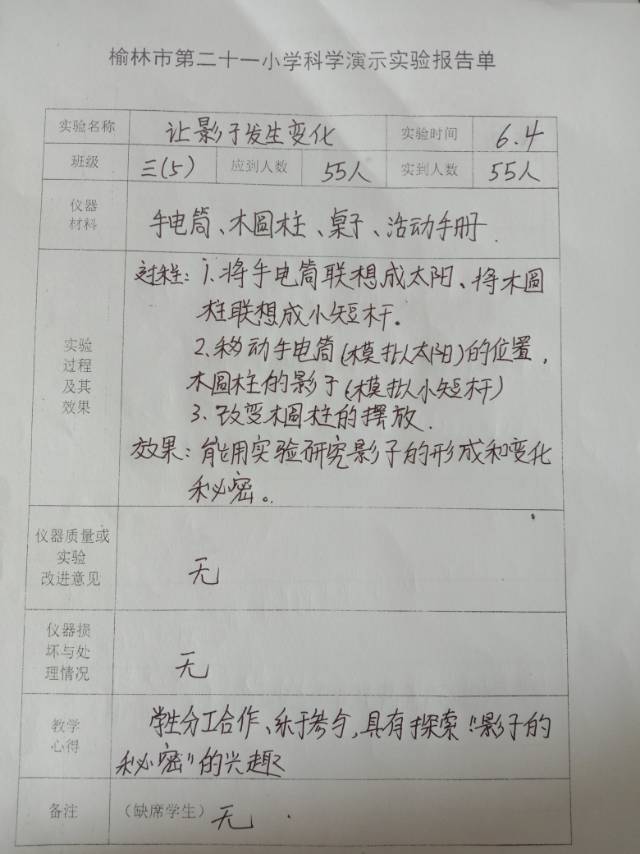 榆林市第二十一小学科学演示实验报告单
实验名称 让影子发生变化 实验时间 6.4
班级 三(5) 应到人数 55人 实到人数 55人
仪器
材料
手电筒、木圆柱、桌子、活动手册.
实验
过程
及其
效果
过程: 1.将手电筒联想成太阳、将木圆
柱联想成小短杆。
2.移动手电筒(模拟太阳)的位置,
木圆柱的影子(模拟小短杆)
3.改变木圆柱的摆放.
效果: 能用实验研究影子的形成和变化
秘密。
仪器质量或
实验
改进意见
无
仪器损
坏与处
理情况
无
教学
心得
学生分工合作、乐于参与,具有探索“影子的
秘密”的兴趣
备注 (缺席学生) 无.